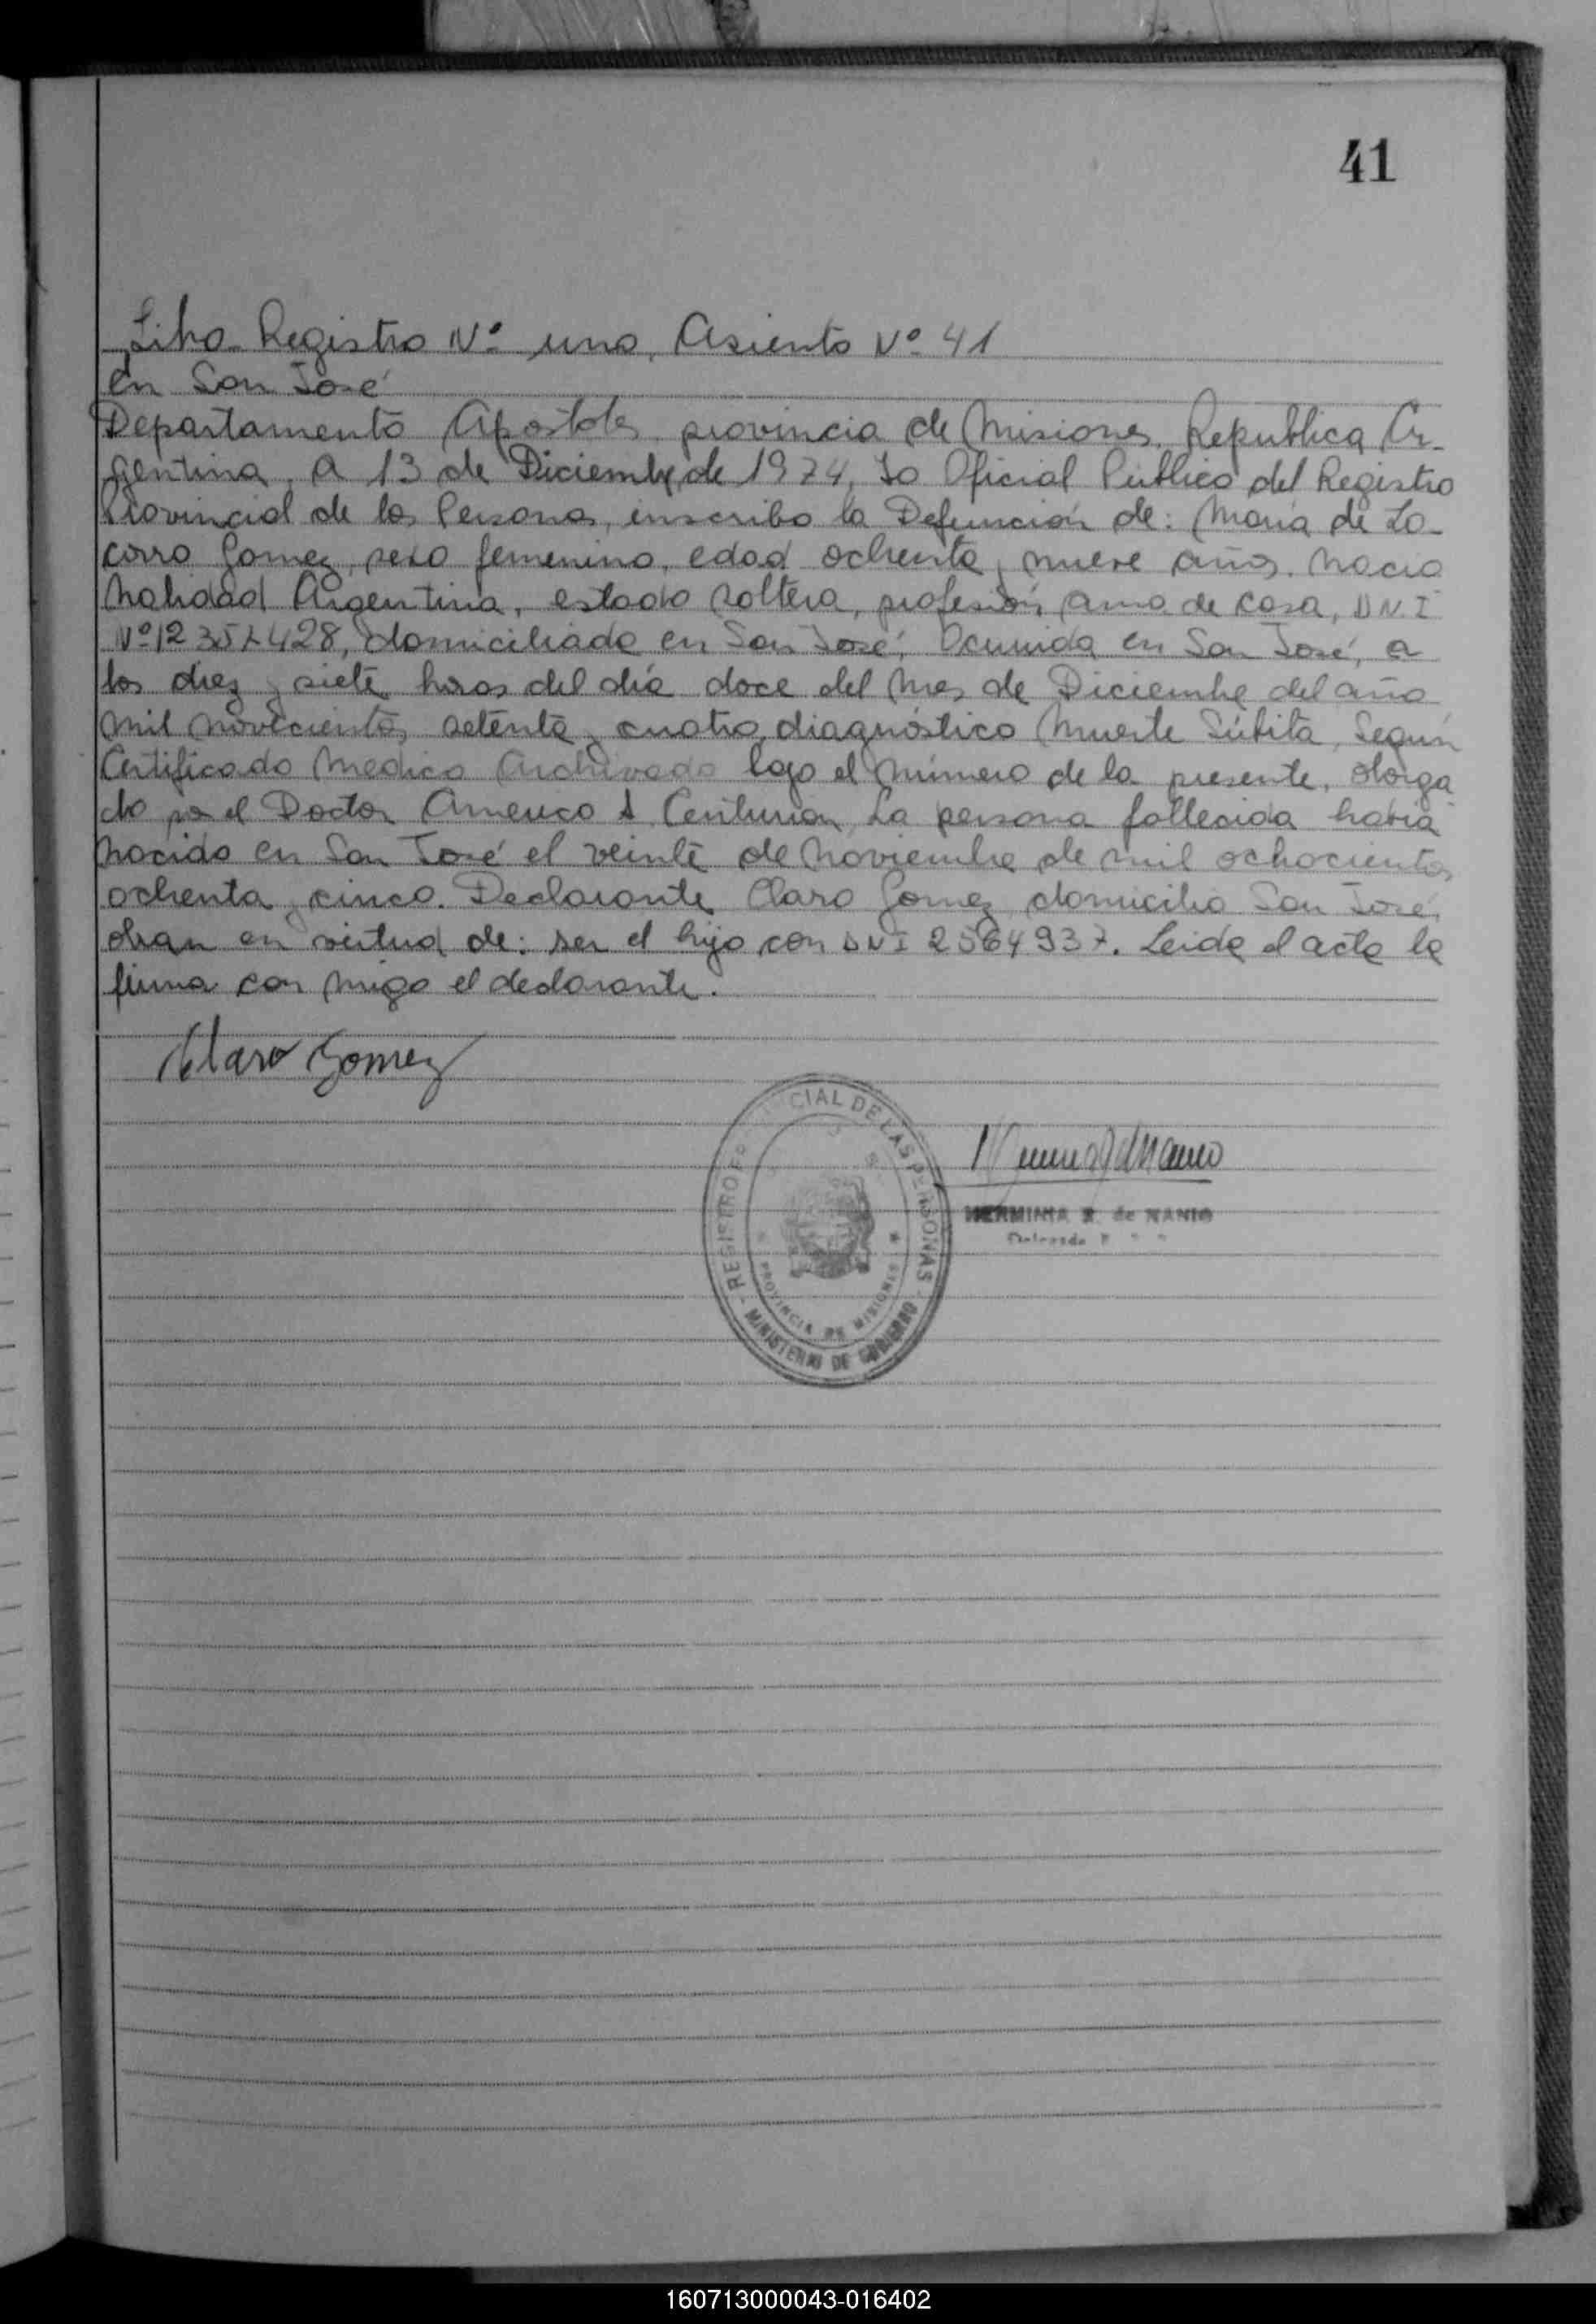 41
Libro Registro Nº uno, Asiento Nº 41
en San José
Departamento Apostoles, provincia de Misiones, Republica Ar-
gentina, a 13 de Diciembre de 1974, Yo Oficial Público del Registro
Provincial de las Personas, inscribo la Defunción de: María de So-
corro Gomez, sexo femenino, edad ochenta y nueve años, nacio
nalidad Argentina, estado soltera, profesión ama de casa, DN.I
domiciliada en San José, Ocurrida en San José, a
los diez y siete horas del día doce del mes de Diciembre del año
mil novecientos setenta y cuatro, diagnóstico Muerte Súbita, Según
Certificado Medico Archivado bajo el número de la presente, otorga
do por el Doctor Americo A. Centurion, La persona fallecida había
nacido en San José el veinte de Noviembre de mil ochocientos
ochenta y cinco. Declarante Claro Gomez domicilio San José,
obran en virtud de: ser el hijo con DNI 2564937. Leida el acta la
firma con migo el declarante.
Claro Gomez
REGISTRO PROVINCIAL DE LAS PERSONAS
PROVINCIA DE MISIONES
MINISTERIO DE GOBIERNO
HERMINIA R. de NANIO
160713000043-016402